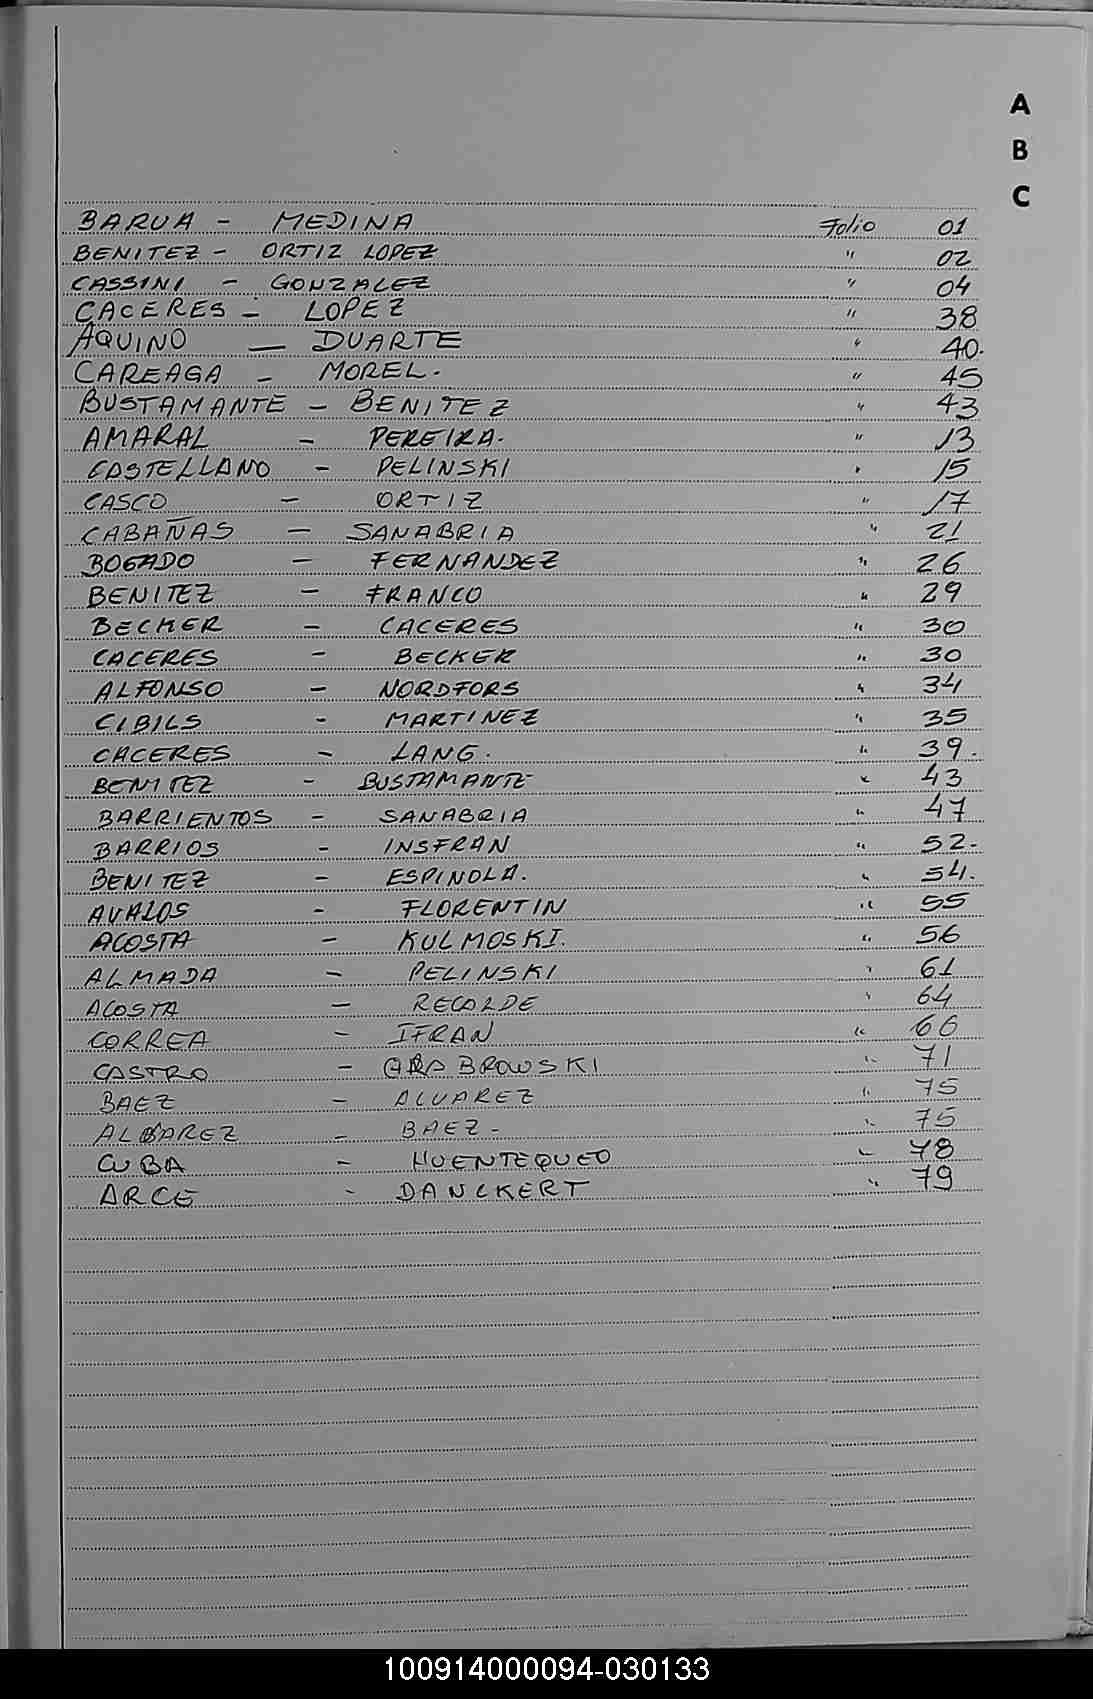 A
B
C
BARUA - MEDINA Folio 01
BENITEZ - ORTIZ LOPEZ " 02
CASSINI - GONZALEZ " 04
CACERES - LOPEZ " 38
AQUINO - DUARTE " 40.
CAREAGA - MOREL. " 45
BUSTAMANTE - BENITEZ " 43
AMARAL - PEREIRA. " 13
CASTELLANO - PELINSKI " 15
CASCO - ORTIZ " 17
CABAÑAS - SANABRIA " 21
BOGADO - FERNANDEZ " 26
BENITEZ - FRANCO " 29
BECKER - CACERES " 30
CACERES - BECKER " 30
ALFONSO - NORDFORS " 34
CIBILS - MARTINEZ " 35
CACERES - LANG. " 39.
BENITEZ - BUSTAMANTE " 43
BARRIENTOS - SANABRIA " 47
BARRIOS - INSFRAN " 52.
BENITEZ - ESPINOLA. " 54.
AVALOS - FLORENTIN " 55
ACOSTA - KULMOSKI. " 56
ALMADA - PELINSKI " 61
ACOSTA - RECALDE " 64
CORREA - IFRAN " 66
CASTRO - " 71
BAEZ - ALVAREZ " 75
ALBAREZ - BAEZ - " 75
CUBA - HUENTEQUEO " 78
ARCE - DANCKERT " 79
100914000094-030133